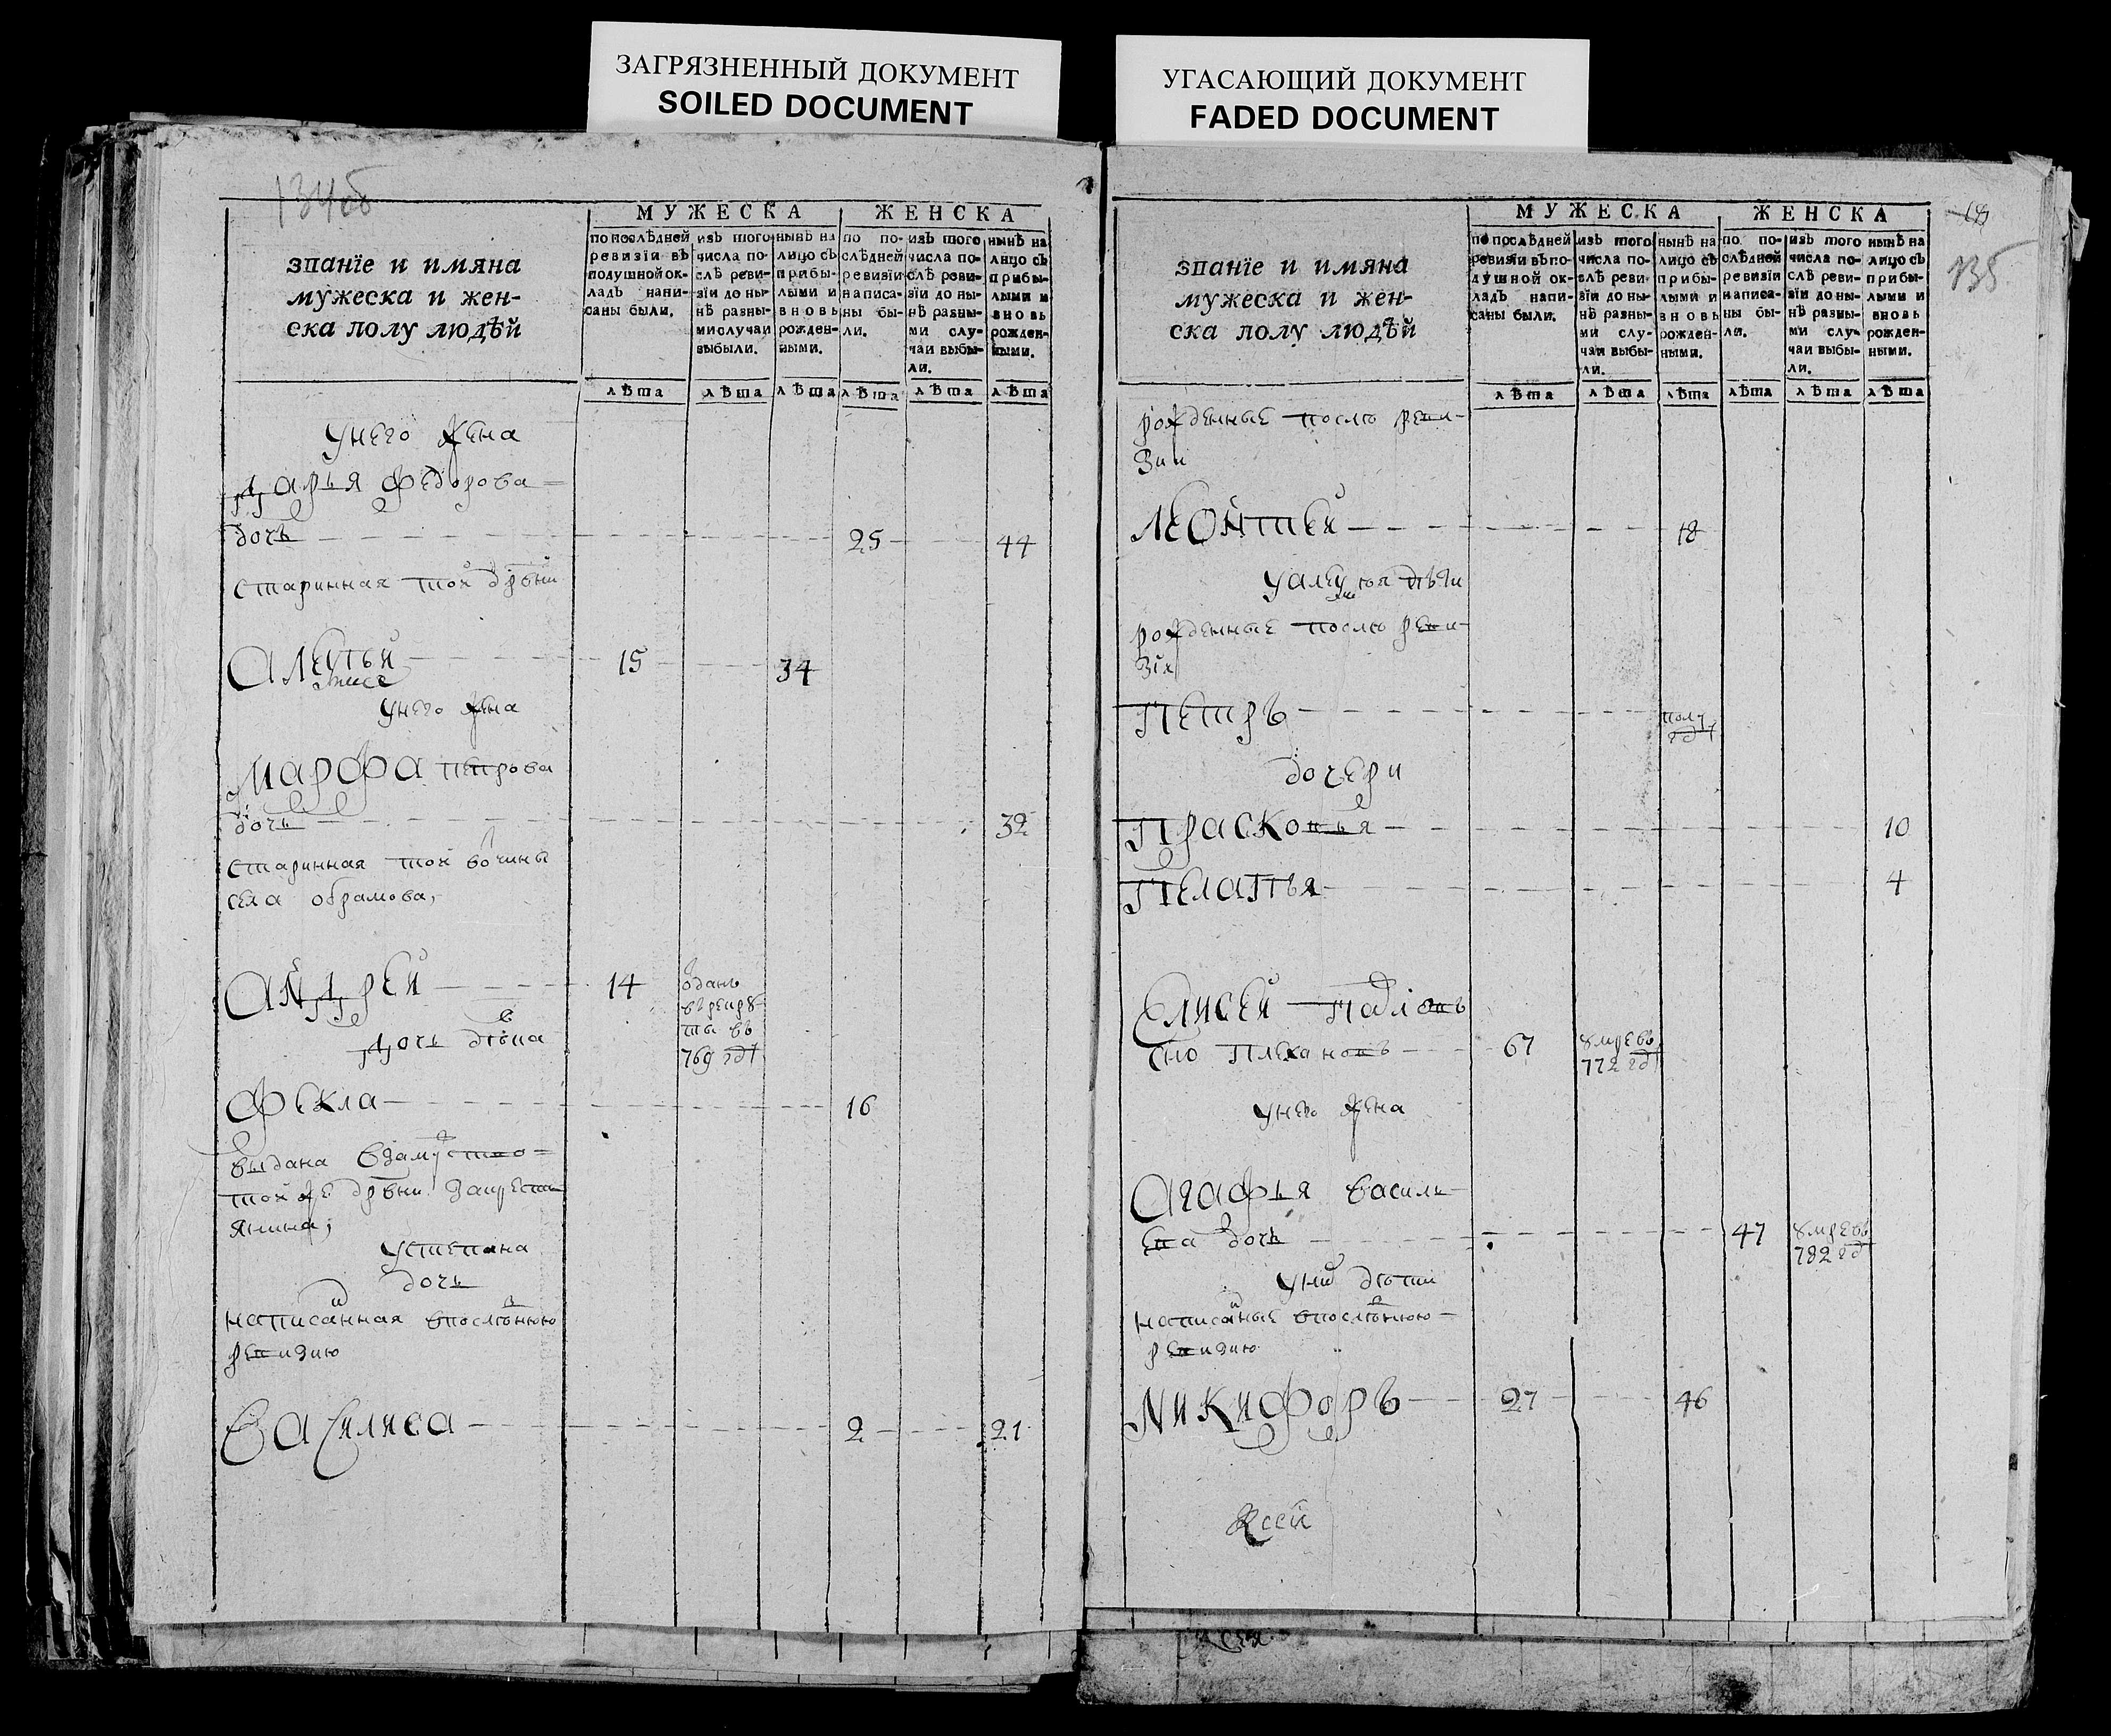 ЗАГРЯЗНЕННЫЙ ДОКУМЕНТ
SOILED DOCUMENT
УГАСАЮЩИЙ ДОКУМЕНТ
FADED DOCUMENT
134об
МУЖЕСКА ЖЕНСКА
званїе и имяна
мужеска и жен-
ска полу людѣй
по послѣдней ревизіи въ подушной ок- ладъ напи- саны были.
изъ того числа по- слѣ реви- зіи до ны- нѣ разны- ми случаи выбыли.
нынѣ на лицо съ прибы- лыми и вновь рожден- ными.
по по- слѣдней ревизіи написа- ны бы- ли.
изъ того числа по- слѣ реви- зіи до ны- нѣ разны- ми слу- чаи выбы- ли.
нынѣ на лицо съ прибы- лыми и вновь рожден- ными.
лѣта лѣта лѣта лѣта лѣта лѣта
унего жена
дарья федорова
дочь 25 44
старинная той дрвни
15 34
унего жена
марфа петрова
дочь 32
старинная той вочины
села обрамова,
андрей 14 оданъ
врекру
ты въ
769 гд
дочь дѣвка
фекла 16
выдана взамуство
той же дрвни закресть
янина,
устепана
дочь
написанная впослѣнюю
ревизию
василиса 2 21
135
МУЖЕСКА ЖЕНСКА
званїе и имяна
мужеска и жен-
ска полу людѣй
по послѣдней ревизіи въ по- душной ок- ладъ напи- саны были.
изъ того числа по- слѣ реви- зіи до ны- нѣ разны- ми слу- чаи выбы- ли.
нынѣ на лицо съ прибы- лыми и вновь рожден- ными.
по по- слѣдней ревизіи написа- ны бы- ли.
изъ того числа по- слѣ реви- зіи до ны- нѣ разны- ми слу- чаи выбы- ли.
нынѣ на лицо съ прибы- лыми и вновь рожден- ными.
лѣта лѣта лѣта лѣта лѣта лѣта
рожденные послѣ реви-
зии
леонтей 18
дѣти
рожденные послѣ реви-
зіи
петръ полу
гд
дочери
прасковья 10
пелагья 4
елисей павловъ
снъ плехановъ 67 умре въ
772 гд
унего жена
агафья василь
ева дочь 47 умре въ
782 гд
уних дѣти
написаные впослѣнюю
ревизию
никифоръ 27 46